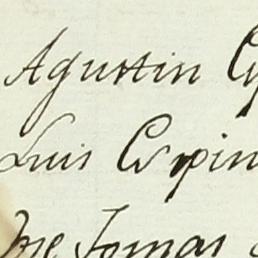 Agustin
Luis Espin
Jose Tomas